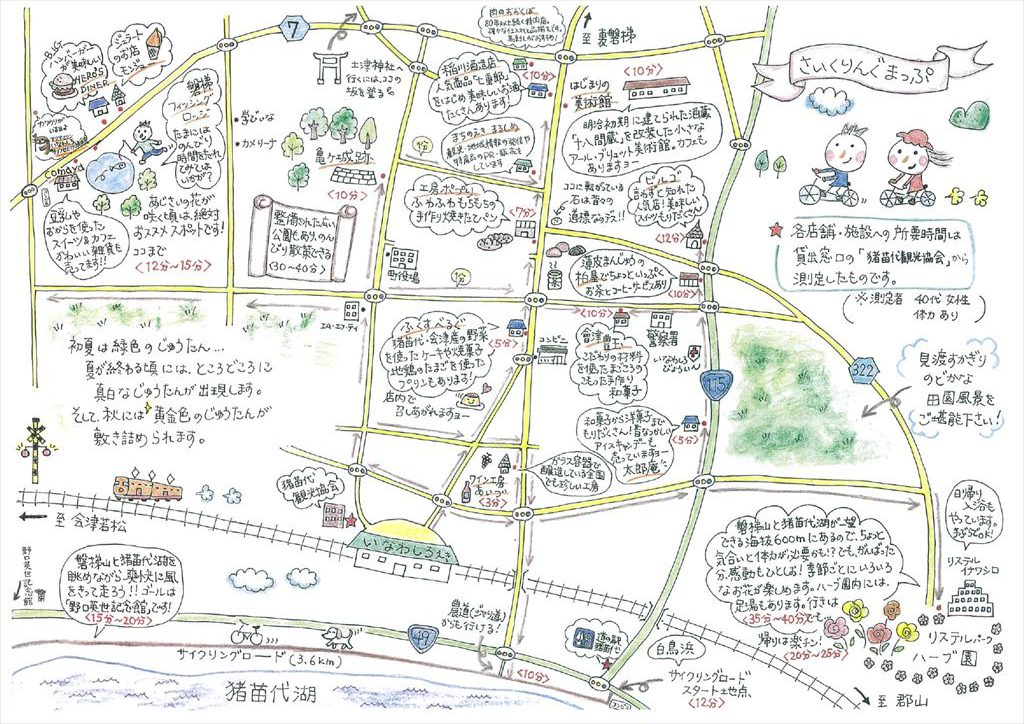 さいくりんぐまっぷ
★各店舗・施設への所要時間は
貸出窓口の「猪苗代観光協会」から
測定したものです。
(※測定者 40代女性
体力あり)
7
至 裏磐梯
BIG
ハンバーガーが
美味しい
HERO'S
DINER
ジェラート
のお店
モンジ
磐梯
フィッシング
ロッジ
たまには
のんびり
時間を忘れて
みては
いかが?
comaya
豆乳や
おからを使った
スイーツ&カフェ
かわいい雑貨も
売ってます!!
あじさいの花が
咲く頃は、絶対
おススメスポットです!
ココまで
<12分〜15分>
学びいな
カメリーナ
土津神社へ
行くには、ココの
坂を登る
亀ヶ城跡
<10分>
整備された広い
公園もあり、のん
びり散策できる
(30〜40分)
肉のおおくぼ
80年以上続く精肉店。
<10分>
稲川酒造店
人気商品「七重郎」
をはじめ美味しいお酒
たくさんあります!
<10分>
まちのえき まるしめ
観光・地域情報の発信や
特産品のPR・販売を
しています
1分
はじまりの
美術館
<10分>
明治初期に建てられた酒蔵
「十八間蔵」を改装した小さな
アール・ブリュット美術館。カフェも
ありますヨー
工房ポップリ
ふわふわもちもちの
手作り焼きたてパン
<7分>
ココに転がっている
石は昔々の
道標なのデス!!
ビルゴ
言わずと知れた
人気店!美味しい
スイーツもりだくさん!
<12分>
薄皮まんじゅうの
柏屋でちょっといっぷく
お茶とコーヒーサービスあり
<10分>
町役場
1分
エム・エフ・ティ
<10分>
会津豊玉
こだわりの材料
を使ったまごころの
こもった手作り
和菓子
警察署
いなわしろ
びょういん
ふくすべるぐ
猪苗代・会津産の野菜
を使ったケーキや焼菓子
地鶏のたまごを使った
プリンもあります!
店内で
召しあがれますヨー
<5分>
コンビニ
115
322
初夏は緑色のじゅうたん…
夏が終わる頃には、ところどころに
真白なじゅうたんが出現します。
そして、秋には黄金色のじゅうたんが
敷き詰められます。
見渡すかぎり
のどかな
田園風景を
ご堪能下さい!
和菓子から洋菓子まで
もりだくさん!昔なつかしい
アイスキャンデーも
売っていますヨー
太郎庵
<5分>
ガラス容器で
醸造している全国
でも珍しい工房
ワイン工房
あいづ
<3分>
猪苗代
観光協会
いなわしろえき
至 会津若松
野口英世記念館
磐梯山と猪苗代湖を
眺めながら、爽快に風
をきって走ろう!!ゴールは
「野口英世記念館」です!
<15分〜20分>
農道(ジャリ道)
からも行ける!
49
サイクリングロード(3.6km)
猪苗代湖
<10分>
道の駅
猪苗代
白鳥浜
サイクリングロード
スタート地点
<12分>
コンビニ
至 郡山
磐梯山と猪苗代湖が一望
できる海抜600mにあるので、ちょっと
気合いと体力が必要かも!?でも、がんばった
分、感動もひとしお!季節ごとにいろいろ
なお花が楽しめます。ハーブ園内には、
足湯もあります。行きは
<35分〜40分>でも、
帰りは楽チン!
<20分〜25分>
日帰り
入浴も
やっています。
手ぶらOK!
リステル
イナワシロ
リステルパーク
ハーブ園